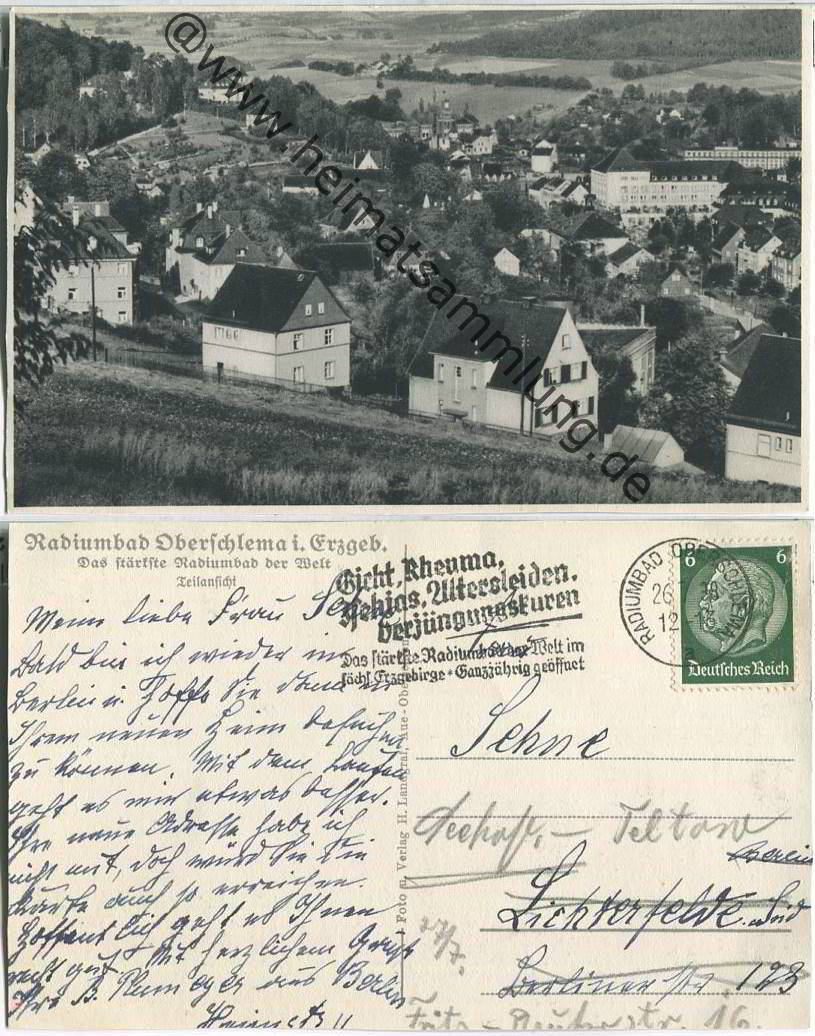 @www.heimatsammlung.de
Radiumbad Oberschlema i. Erzgeb.
Das stärkste Radiumbad der Welt
Teilansicht
Gicht, Rheuma,
Ischias, Altersleiden,
Verjüngungskuren
Das stärkste Radiumbad der Welt im
sächs. Erzgebirge * Ganzjährig geöffnet
RADIUMBAD OBERSCHLEMA
26
12
a
6 6
Deutsches Reich
Foto u. Verlag H. Landgraf, Aue
Meine liebe Frau
Bald bin ich wieder in
Berlin u. hoffe Sie dann in
Ihrem neuen Heim besuchen
zu können. Mit dem Laufen
geht es mir etwas besser.
Ihre neue Adresse habe ich
nicht mit, doch wird Sie die
Karte auch so erreichen.
Hoffentlich geht es Ihnen
recht gut. Mit herzlichem Gruß
Ihre B. aus Berlin
Seehof, - Teltow
Berlin
Lichterfelde Süd
27/7.
Berliner Str 123
Fritz-Reuter str 16